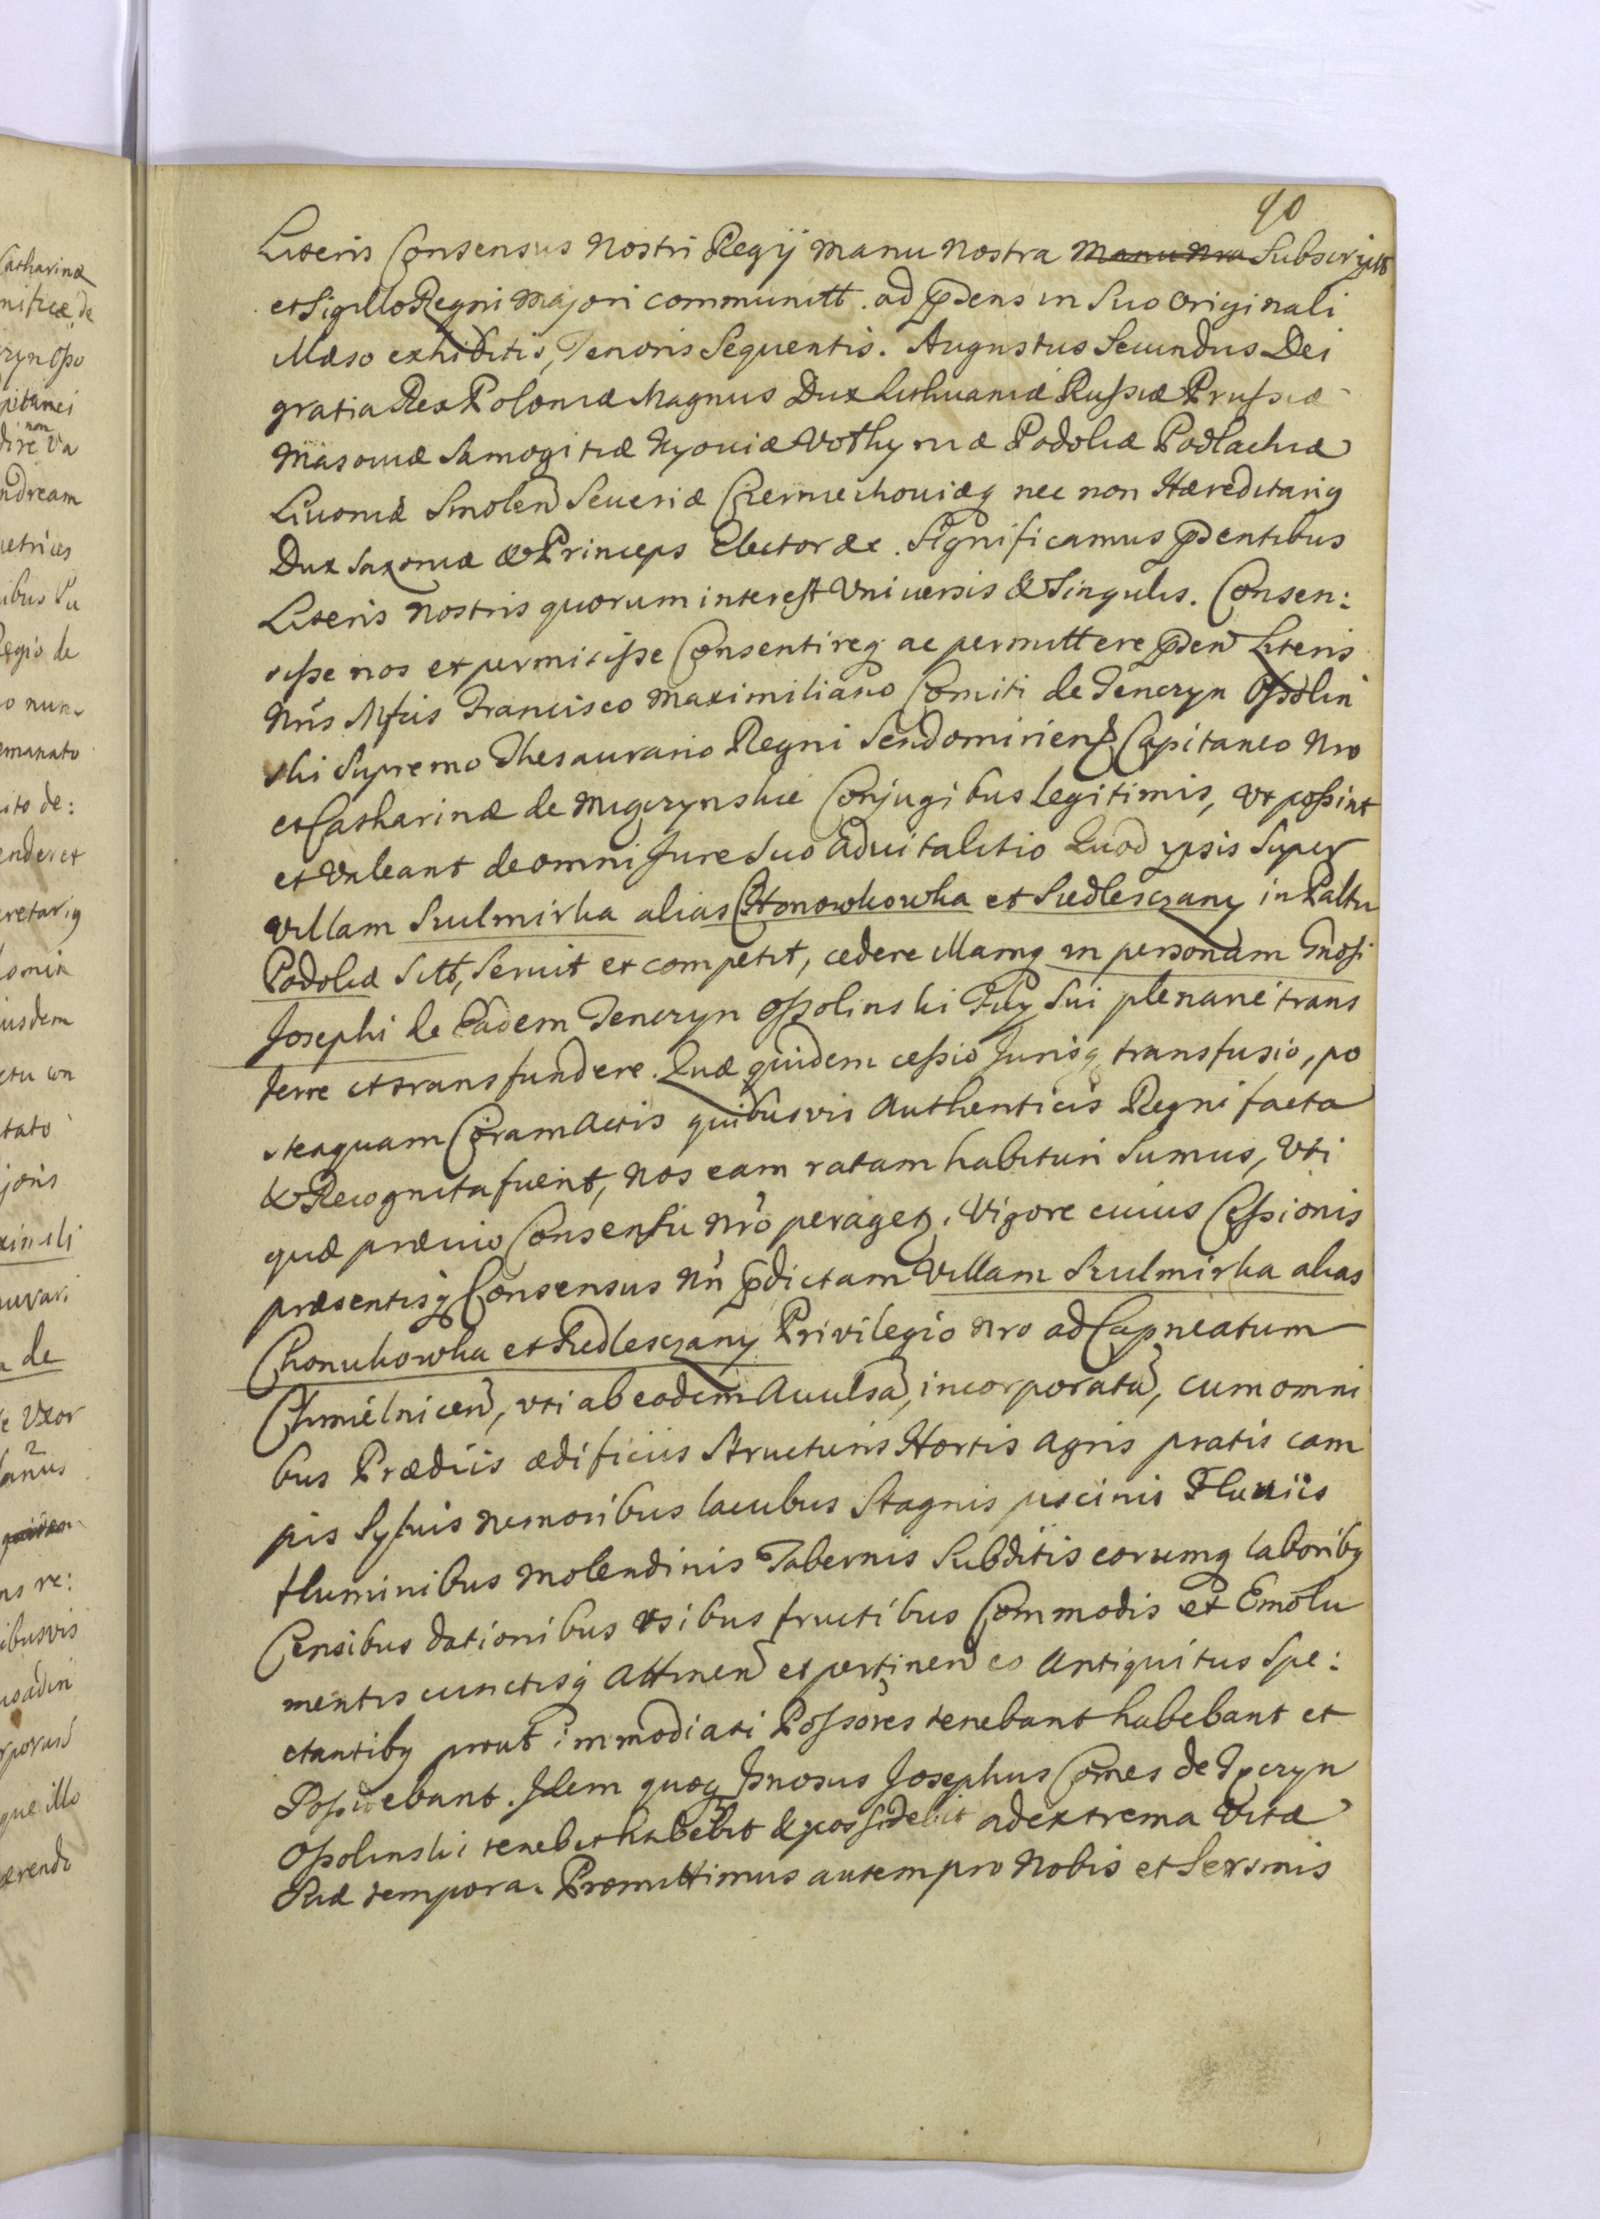 40
Literis Consensus Nostri Regij manu nostra Manu Nra Subscriptis
et Sigillo Regni Majori communitt. ad prdens in Suo originali
illaeso exhibitis, Tenoris Sequentis. Augustus Secundus Dei
gratia Rex Poloniae Magnus Dux Lithuaniae Russiae Prussiae
Masoviae Samogitiae Kyoviae Volhyniae Podoliae Podlachiae
Livoniae Smolen Severiae Czerniechoviaeq nec non Haereditariq
Dux Saxoniae & Princeps Elector &c. Significamus prdentibus
Literis nostris quorum interest Universis & Singulis. Consen:
sisse nos et permisisse Consentireq ac permittere prden Literis
Nris Mfcis Francisco Maximiliano Comiti de Tenczyn Ossolin
ski Supremo Thesaurario Regni Sendomiriens Capitaneo Nro
et Catharinae de Miączynskie Conjugibus legitimis, Ut possint
et Valeant de omni Jure Suo advitalitio Quod ipsis Super
Villam Szulmirka alias Chonowkowka et Siedlesczany in Paltu
Podoliae Sitt, Servit et competit, cedere illamq in personam Gnosi
Josephi de Eadem Tenczyn Ossolinski Filij Sui plenarié trans
ferre et transfundere. Quae quidem cessio Jurisq transfusio, po
steaquam Coram Actis quibusvis Authenticis Regni facta
& Recognita fuerit, nos eam ratam habituri Sumus, Uti
quae praevio Consensu nro peraget. Vigore cuius Cessionis
praesentisq Consensus Nri prdictam Villam Szulmirka alias
Chonukowka et Siedlesczany Privilegio Nro ad Capneatum
Chmielnicen, uti ab eodem Avulsa, incorporata, cum omni
bus Praediis aedificiis Structuris Hortis agris pratis cam
pis Sylvis nemoribus lacubus Stagnis piscinis Fluviis
fluminibus molendinis Tabernis Subditis eorumq laboribq
Censibus dationibus usibus fructibus Commodis et Emolu
mentis cunctisq Attinen et pertinen eo antiquitus Spe:
ctantibq prout immediati Possores tenebant habebant et
Possidebant. Idem quoq Gnosus Josephus Comes de Tęczyn
Ossolinski tenebit habebit & possidebit ad extrema Vitae
Suae tempora. Promittimus autem pro Nobis et Sersmis